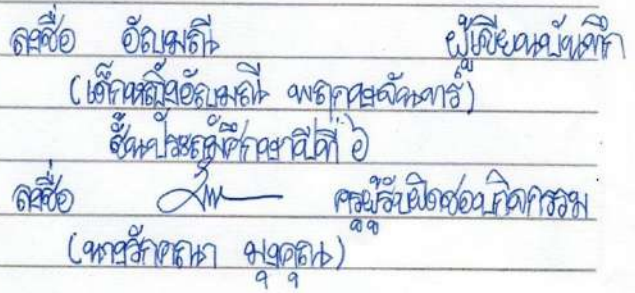 ลงชื่อ อัญมณี ผู้เขียนบันทึก
(เด็กหญิงอัญมณี พฤกษอัมพร์)
ชั้นประถมศึกษาปีที่ ๖
ลงชื่อ ครูผู้รับผิดชอบกิจกรรม
(นางรักคณา มุงคุณ)